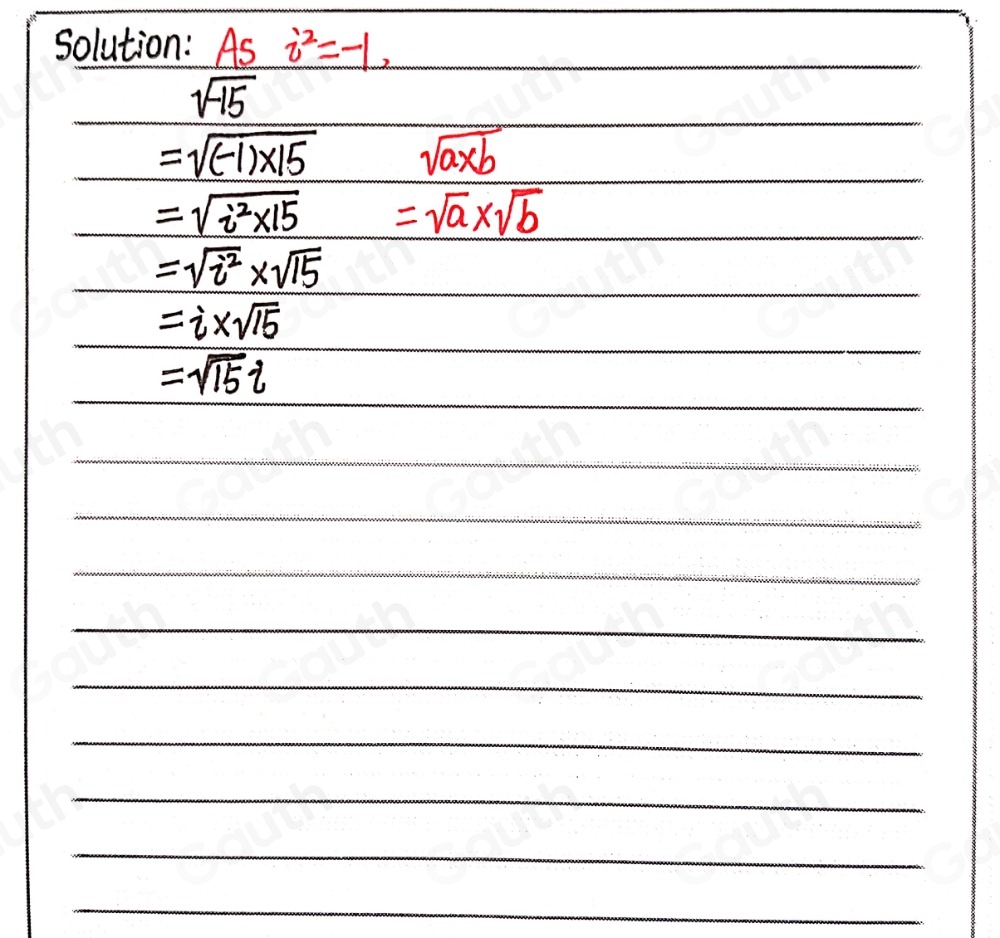 Solution: As i²=-1,
√-15
=√(-1)×15 √a×b
=√i²×15 =√a×√b
=√i²×√15
=i×√15
=√15 i
Gauth